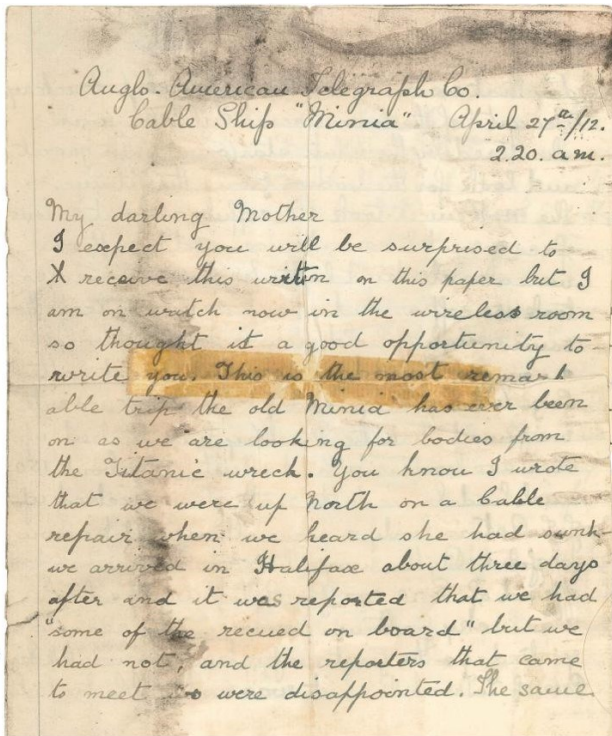 Anglo-American Telegraph Co.
Cable Ship "Minia" April 27th/12.
2.20. a.m.
My darling Mother
I expect you will be surprised to
receive this written on this paper but I
am on watch now in the wireless room
so thought it a good opportunity to
write you. This is the most remark
able trip the old Minia has ever been
on as we are looking for bodies from
the Titanic wreck. You know I wrote
that we were up North on a Cable
repair when we heard she had sunk-
we arrived in Halifax about three days
after and it was reported that we had
"some of the recued on board" but we
had not, and the reporters that came
to meet us were disappointed. The same